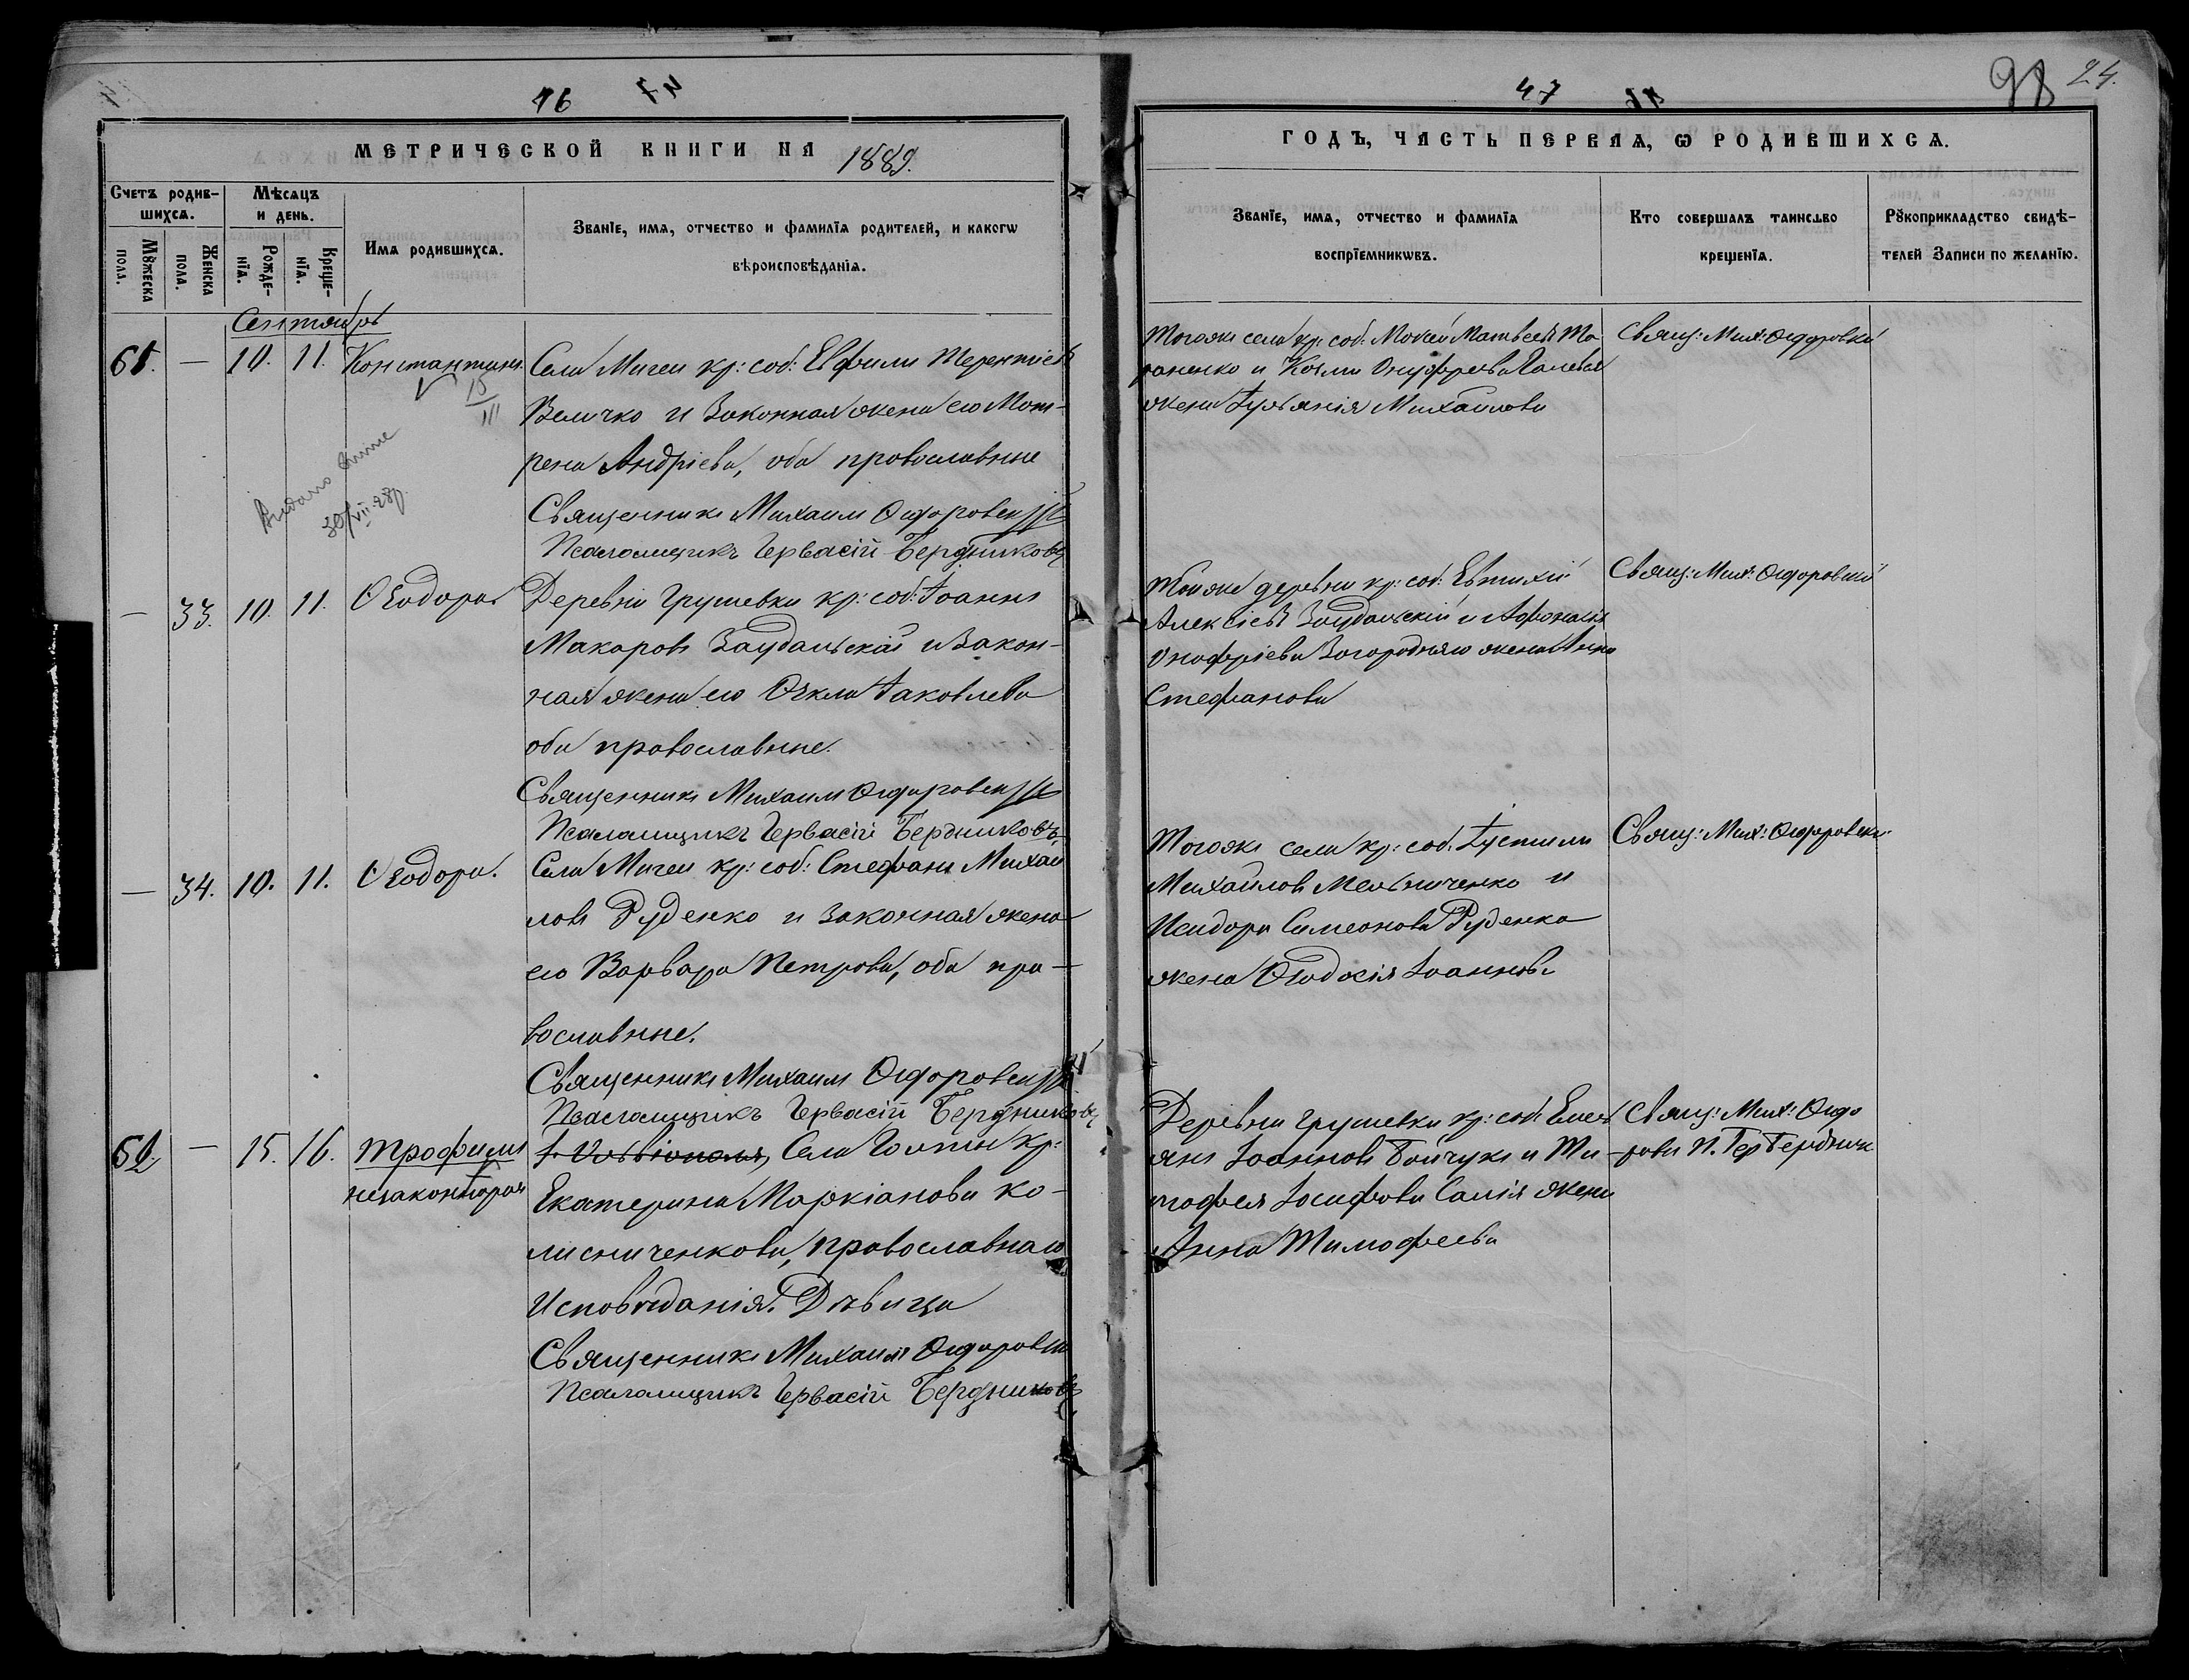 46 47
МЕТРИЧЕСКОЙ КНИГИ НА 1889.
Счетъ родив-
шихсѧ.
Мꙋжеска
пола.
Женска
пола.
Мѣсѧцъ
и день.
Рожде-
нїѧ.
Креще-
нїѧ.
Имѧ родившихсѧ.
Званїе, имѧ, отчество и фамилїѧ родителей, и какогѡ
вѣроисповѣданїѧ.
Сентябрь
61. — 10. 11. Константинъ.
15/III
Видано
30/VII-28р.
Села Мигеи кр: соб: Евфимъ Терентіевъ
Величко и законная жена его Мот-
рена Андріева, оба православные
Священникъ Михаилъ Ѳедоровскій
Псаломщикъ Гервасій Бердниковъ
— 33. 10. 11. Ѳеодора
Деревни Грушевки кр: соб: Іоаннъ
Макаровъ Заудальскій и закон-
ная жена его Ѳекла Іаковлева
оба православные.
Священникъ Михаилъ Ѳедоровскій
Псаломщикъ Гервасій Бердниковъ
— 34. 10. 11. Ѳеодора.
Села Мигеи кр: соб: Стефанъ Михаи
ловъ Руденко и законная жена
его Варвара Петрова, оба пра-
вославные.
Священникъ Михаилъ Ѳедоровскій
Псаломщикъ Гервасій Бердниковъ
62 — 15. 16. Трофимъ
незаконнорож
Села кр:
Екатерина Маркіанова Ко-
лисниченкова, православнаго
исповѣданія. Дѣвица
Священникъ Михаилъ Ѳедоровскій
Псаломщикъ Гервасій Бердниковъ
47 98 24.
ГОДЪ, ЧАСТЬ ПЕРВАѦ, Ѡ РОДИВШИХСѦ.
Званїе, имѧ, отчество и фамилїѧ
воспрїемникѡвъ.
Кто совершалъ таинство
крещенїѧ.
Рꙋкоприкладство свидѣ-
телей Записи по желанїю.
Тогоже села кр: соб: Мокей Матвеевъ Та
раненко и Козьмы Онуфріева
жена Іуліанія Михаилова
Свящ: Мих: Ѳедоровскій
Тойже деревни кр: соб: Евтихій
Алексіевъ Заудальскій и Афанасія
Онофріева Загородняго жена Анна
Стефанова
Свящ: Мих: Ѳедоровскій
Тогоже села кр: соб: Іустинъ
Михаиловъ Мельниченко и
Исидора Симеонова Руденка
жена Ѳеодосія Іоаннова
Свящ: Мих: Ѳедоровскій
Деревни Грушевки кр: соб: Емель
янъ Іоанновъ Бойчукъ и Ти-
мофея Іосифова жена
Анна Тимофеева
Свящ: Мих: Ѳедо
ровс П. Гер Бердник